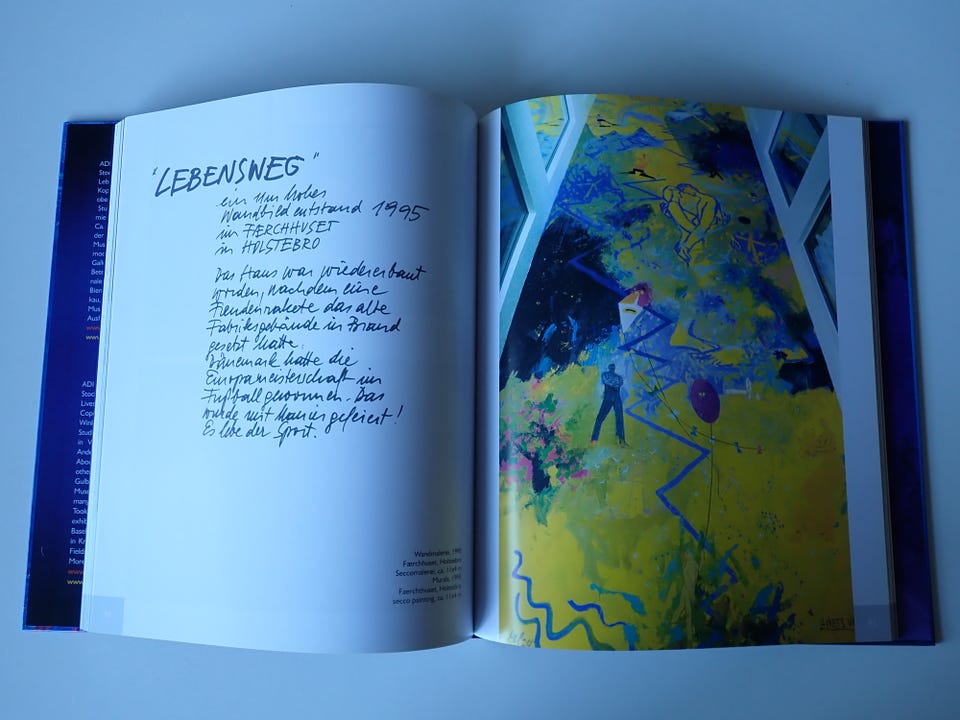 "LEBENSWEG"
ein 11m hohes
Wandbild entstand 1995
im FÆRCHHUSET
in HOLSTEBRO
Das Haus war wiedererbaut
worden, nachdem eine
Freudenrakete das alte
Fabriksgebäude in Brand
gesetzt hatte.
Dänemark hatte die
Europameisterschaft im
Fußball gewonnen. Das
wurde mit Manier gefeiert!
Es lebe der Sport.
Wandmalerei, 1995
Færchhuset, Holstebro
Seccomalerei, ca. 11x4 m
Murals, 1995
Færchhuset, Holstebro
secco painting, ca. 11x4 m
ADI
Stoc
Leb
Kop
obe
Stu
mie
Ca.
der
Mus
mod
Gall
Bets
nale
Bien
kau,
Mus
Ausf
www
ADI
Stoc
Live
Cop
Win
Stud
in V
And
Abou
othe
Gulb
Muse
many
Took
exhib
Base
in Kr
Field
More
www